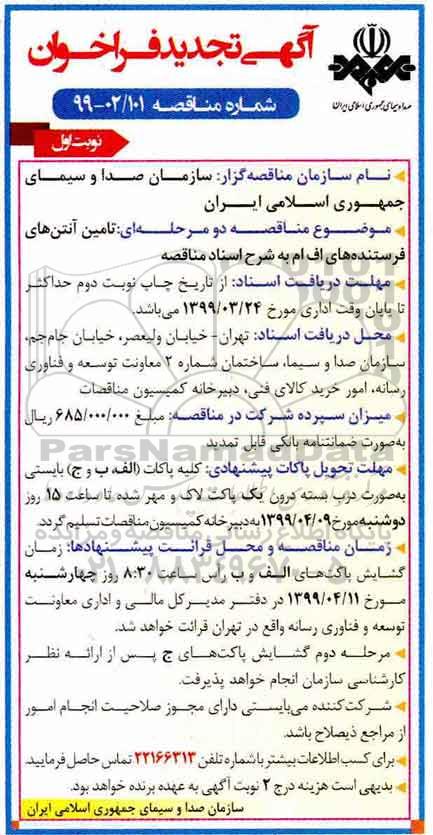 صدا و سیمای جمهوری اسلامی ایران
آگهی تجدید فراخوان
شماره مناقصه ۹۹-۰۲/۱۰۱
نوبت اول
نــام سازمان مناقصه‌گزار: سازمــان صــدا و سیمــای
جمهــوری اســلامی ایــران
موضــوع مناقصــه دو مرحلــه‌ای:تامین آنتن‌های
فرستنده‌های اف ام به شرح اسناد مناقصه
مهلـت دریافـت اسـناد: از تاریـخ چـاپ نوبـت دوم حداکثر
تا پایان وقت اداری مورخ ۱۳۹۹/۰۳/۲۴ می‌باشد.
محـل دریافـت اسـناد: تهران- خیابان ولیعصر، خیابان جام‌جم،
سازمان صدا و سیما، ساختمان شماره ۲ معاونت توسعه و فناوری
رسانه، امور خرید کالای فنی، دبیرخانه کمیسیون مناقصات
میـزان سـپرده شـرکت در مناقصـه: مبلـغ ۶۸۵/۰۰۰/۰۰۰ ریـال
به‌صورت ضمانتنامه بانکی قابل تمدید
مهلت تحویل پاکات پیشنهادی: کلیه پاکات (الف، ب و ج) بایستی
به‌صورت درب بسته درون یک پاکت لاک و مهر شده تا ساعت ۱۵ روز
دوشنبه مورخ ۱۳۹۹/۰۴/۰۹ به دبیرخانه کمیسیون مناقصات تسلیم گردد.
زمــان مناقصــه و محــل قرائــت پیشــنهادها: زمــان
گشایش پاکت‌های الــف و ب راس ساعت ۸:۳۰ روز چهارشـنبه
مـورخ ۱۳۹۹/۰۴/۱۱ در دفتـر مدیـرکل مالـی و اداری معاونـت
توسعه و فناوری رسانه واقع در تهران قرائت خواهد شد.
مرحلــه دوم گشــایش پاکت‌هــای ج پــس از ارائــه نظــر
کارشناسی سازمان انجام خواهد پذیرفت.
شـرکت‌کننده می‌بایسـتی دارای مجـوز صلاحیـت انجـام امـور
از مراجع ذیصلاح باشد.
برای کسب اطلاعات بیشتر با شماره تلفن ۲۲۱۶۶۳۱۳ تماس حاصل فرمایید.
بدیهی است هزینه درج ۲ نوبت آگهی به عهده برنده خواهد بود.
سازمان صدا و سیمای جمهوری اسلامی ایران
ParsNamadData